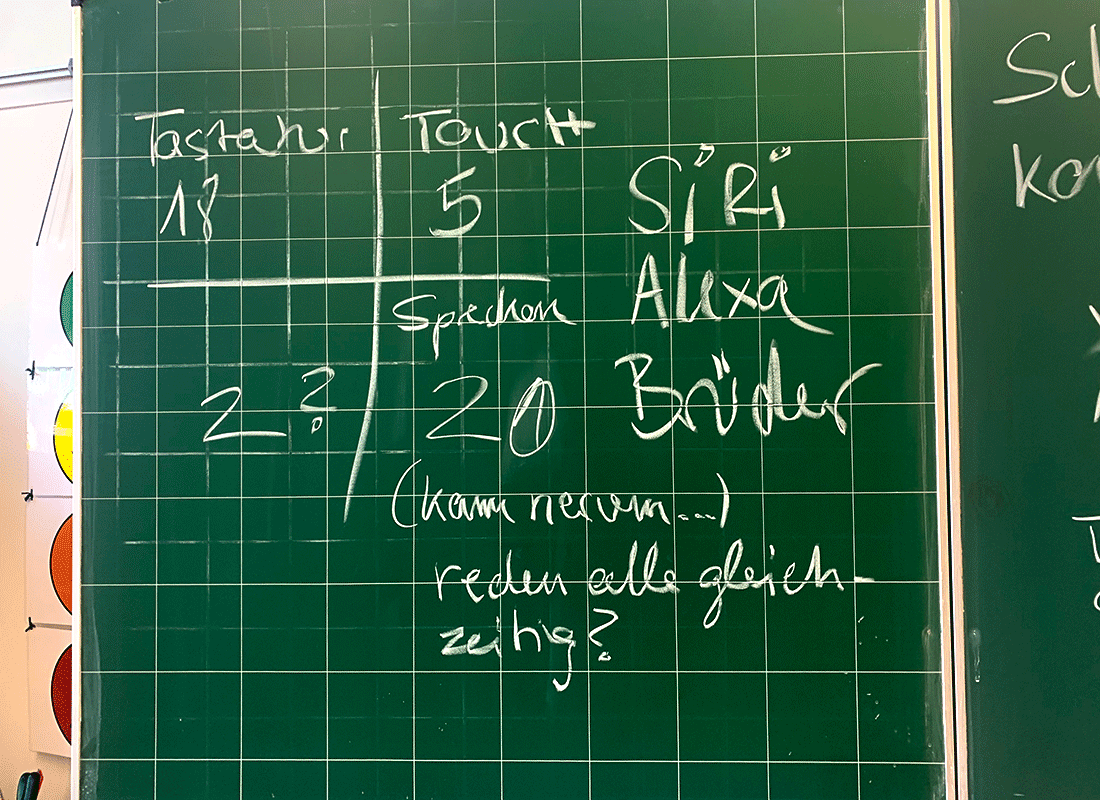 Tastatur
Touch
18
5
SiRi
Sprechen
Alexa
2 ?
20
Brüder
(kann nerven...)
reden alle gleich-
zeitig?
Sch
Ko